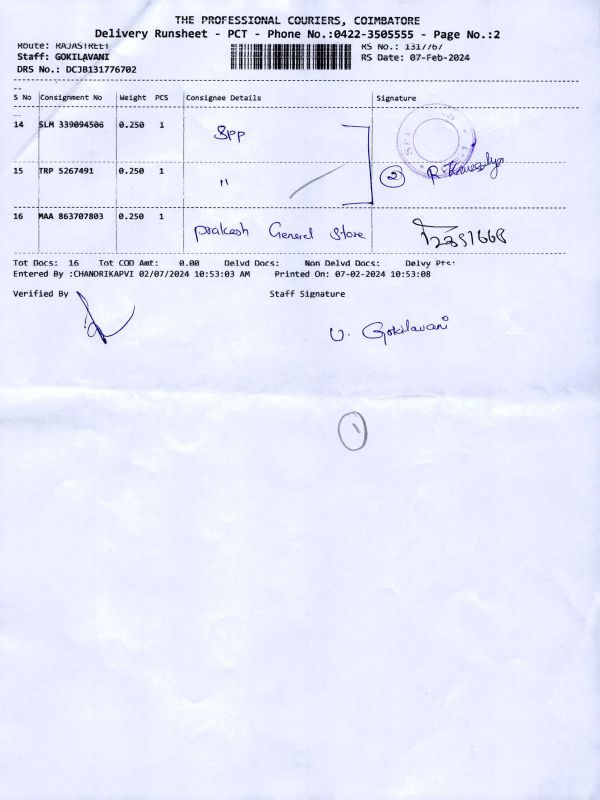 THE PROFESSIONAL COURIERS, COIMBATORE
Delivery Runsheet - PCT - Phone No.:0422-3505555 - Page No.:2
Route: RAJASTREET RS No.: 1317767
Staff: GOKILAVANI RS Date: 07-Feb-2024
DRS No.: DCJB131776702
S No Consignment No Weight PCS Consignee Details Signature
14 SLM 339094506 0.250 1 Spp
15 TRP 5267491 0.250 1 " 2
16 MAA 863707803 0.250 1 prakash General Store
Tot Docs: 16 Tot COD Amt: 0.00 Delvd Docs: Non Delvd Docs: Delvy Pts:
Entered By :CHANDRIKAPVI 02/07/2024 10:53:03 AM Printed On: 07-02-2024 10:53:08
Verified By Staff Signature
U. Gokilavani
1